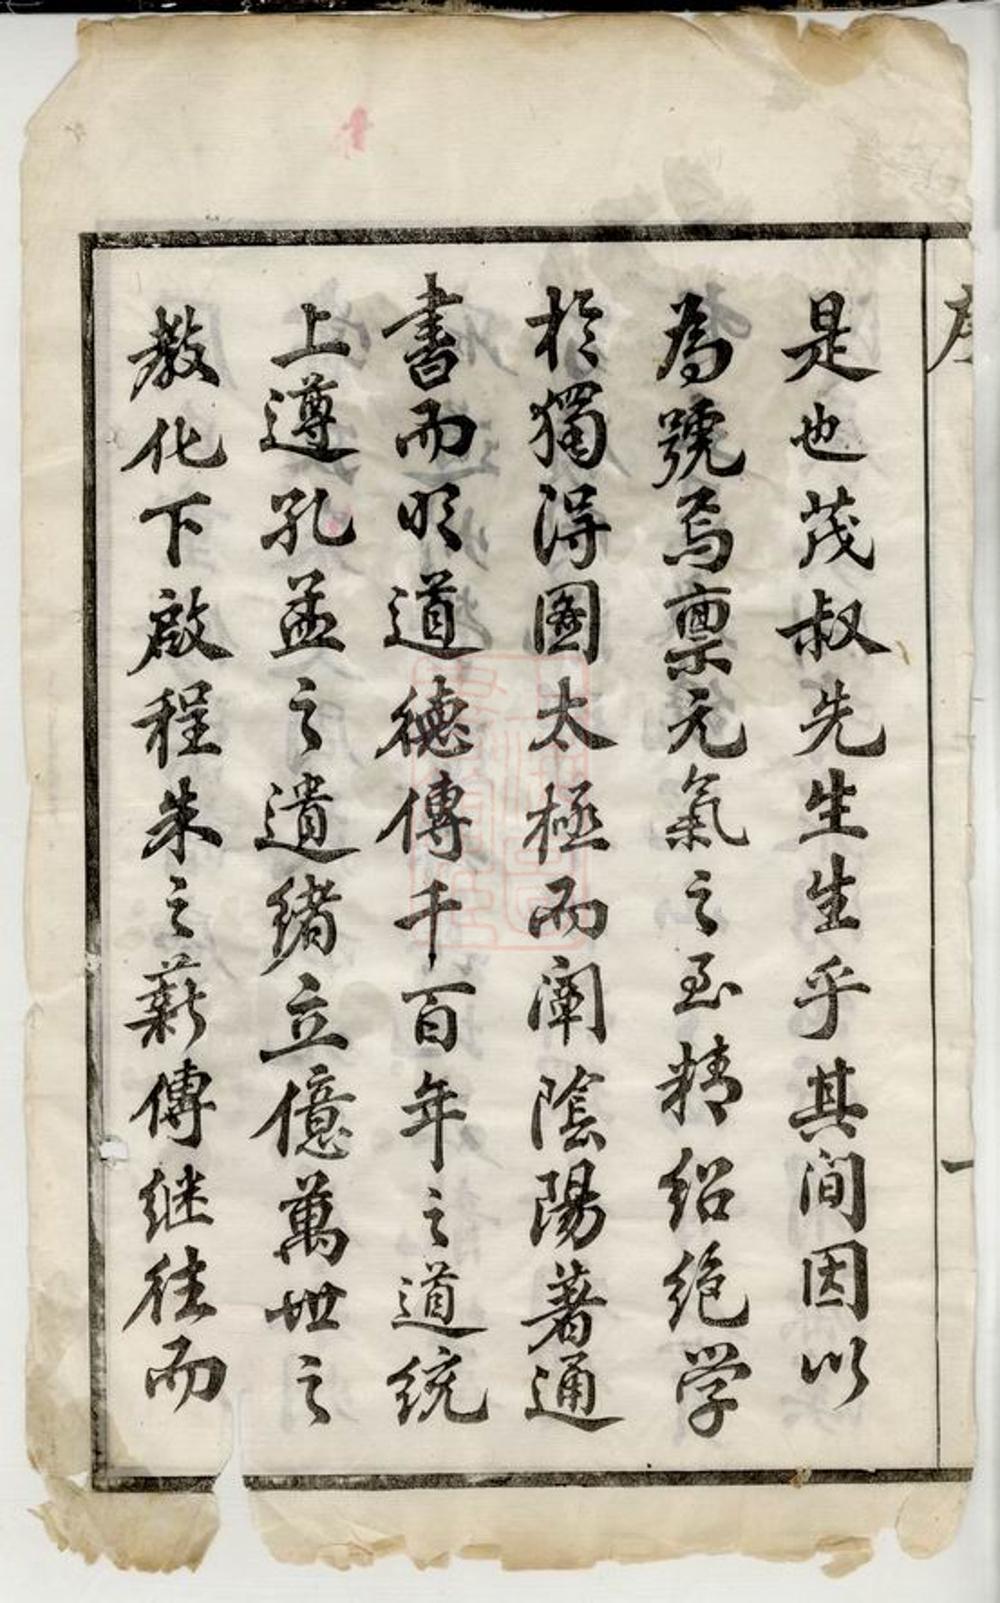 序
一
是也茂叔先生生乎其间因以
為號焉禀元氣之至精紹絶学
於獨得圖太極而闡陰陽著通
書而明道德傳千百年之道統
上遵孔孟之遺緒立億萬世之
教化下啟程朱之薪傳继往而